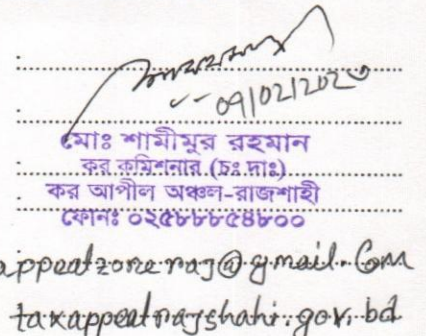 ০৭/০২/২০২৩
মোঃ শামীমুর রহমান
কর কমিশনার (চঃ দাঃ)
কর আপীল অঞ্চল-রাজশাহী
ফোনঃ ০২৫৮৮৮৫৪৮০০
appealzoneraj@gmail.com
taxappealrajshahi.gov.bd